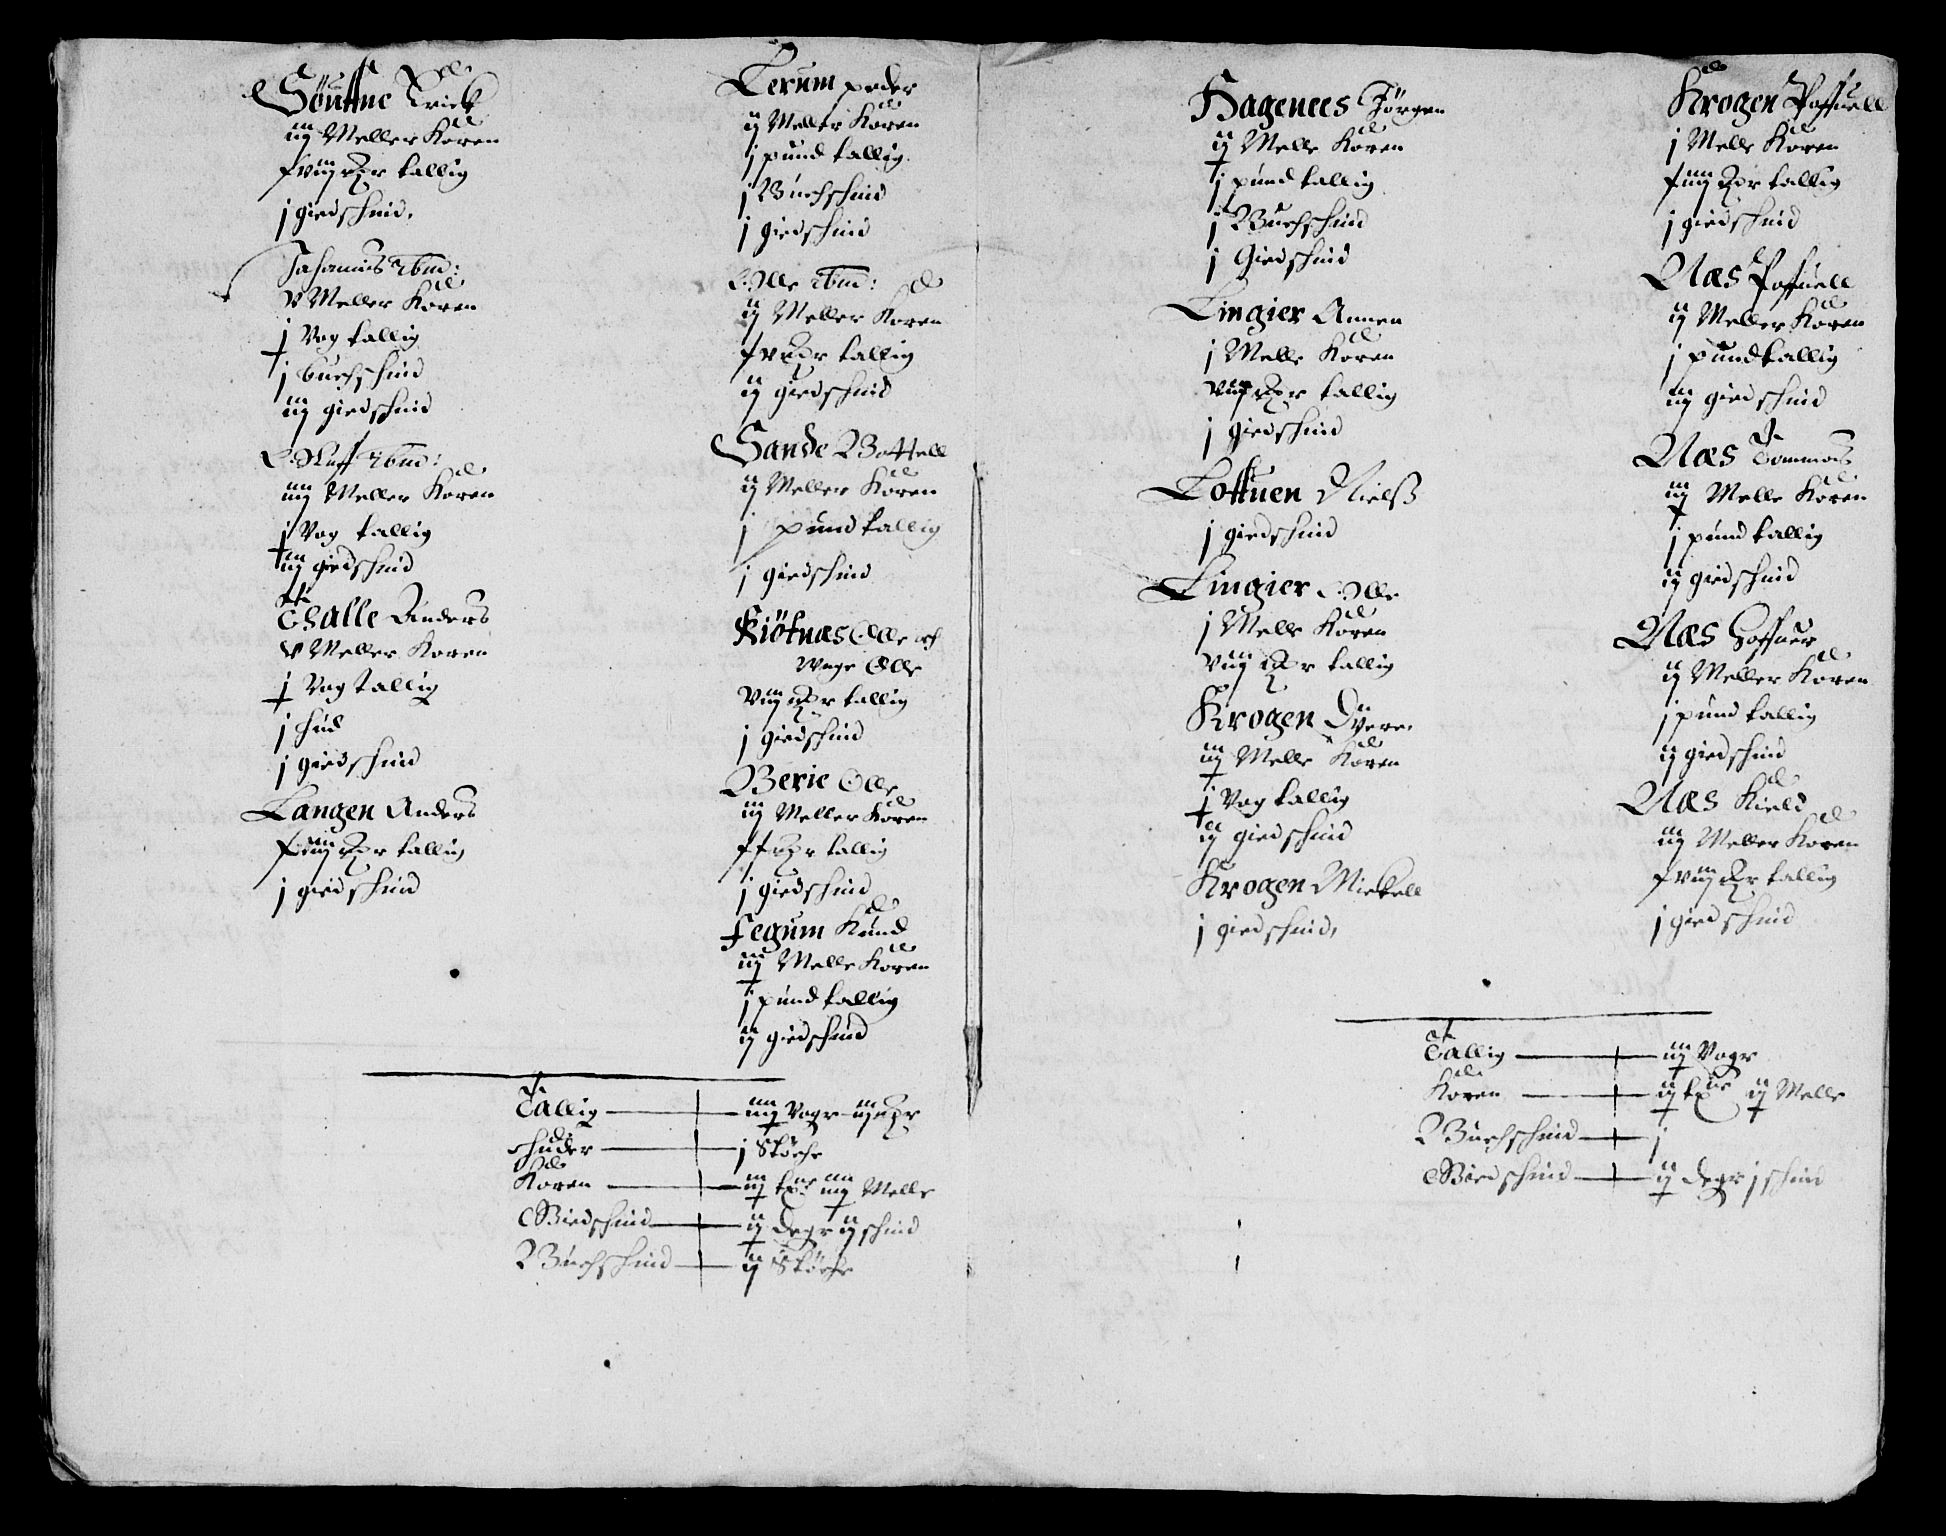 Söuffne Erick
iij Meller Koren
xviij mrk tallig
j giedschind.
Johannis ibid:
v Meller Koren
j Vog tallig
j buchschind
iij giedschind
Oluff ibid:
iiij Meller Koren
j Vog tallig
iij giedschind
Thalle Anders
v Meller Koren
j Vog tallig
j hud
j giedschind
Langen Anders
mrk tallig
j giedschind
Lerum peder
ij Meller Koren
j pund tallig
j Buchschind
j giedschind
Olle ibid:
ij Meller Koren
xv mrk tallig
ij giedschind
Sande Bottell
ij Meller Koren
j pund tallig
j giedschind
Kiötnæs Olle och
Wege Olle
viij mrk tallig
j giedschind
Berie Olle
iij Meller Koren
xx mrk tallig
j giedschind
Fegum Knud
iij Melle Koren
j pund tallig
ij giedschind
Tallig — iiij Vogr iij mrk
Huder — j Støche
Koren — iij iiij Melle
Giedschind — ij degr ij schind
Buchschind — ij Støche
Hagenees Jörgen
ij Melle Koren
j pund tallig
j Buchschind
j Giedschind
Lingier Annen
j Melle Koren
mrk tallig
j giedschind
Loftuen Nielß
j giedschind
Lingier Olle
j Melle Koren
viij mrk tallig
Krogen Övere
iij Melle Koren
j Vog tallig
ij giedschind
Krogen Mickell
j giedschind,
Krogen Poffuell
j Melle Koren
xiiij mrk tallig
j giedschind
Næs Poffuell
ij Meller Koren
j pund tallig
iij giedschind
Næs Tommas
iij Melle Koren
j pund tallig
ij giedschind
Næs Goffner
ij Meller Koren
j pund tallig
ij giedschind
Næs Kield
iij Meller Koren
xviij mrk tallig
j giedschind
Tallig — iij Vogr
Koren — ij ij Melle
Buchschind — j
Giedschind — ij degr j schind